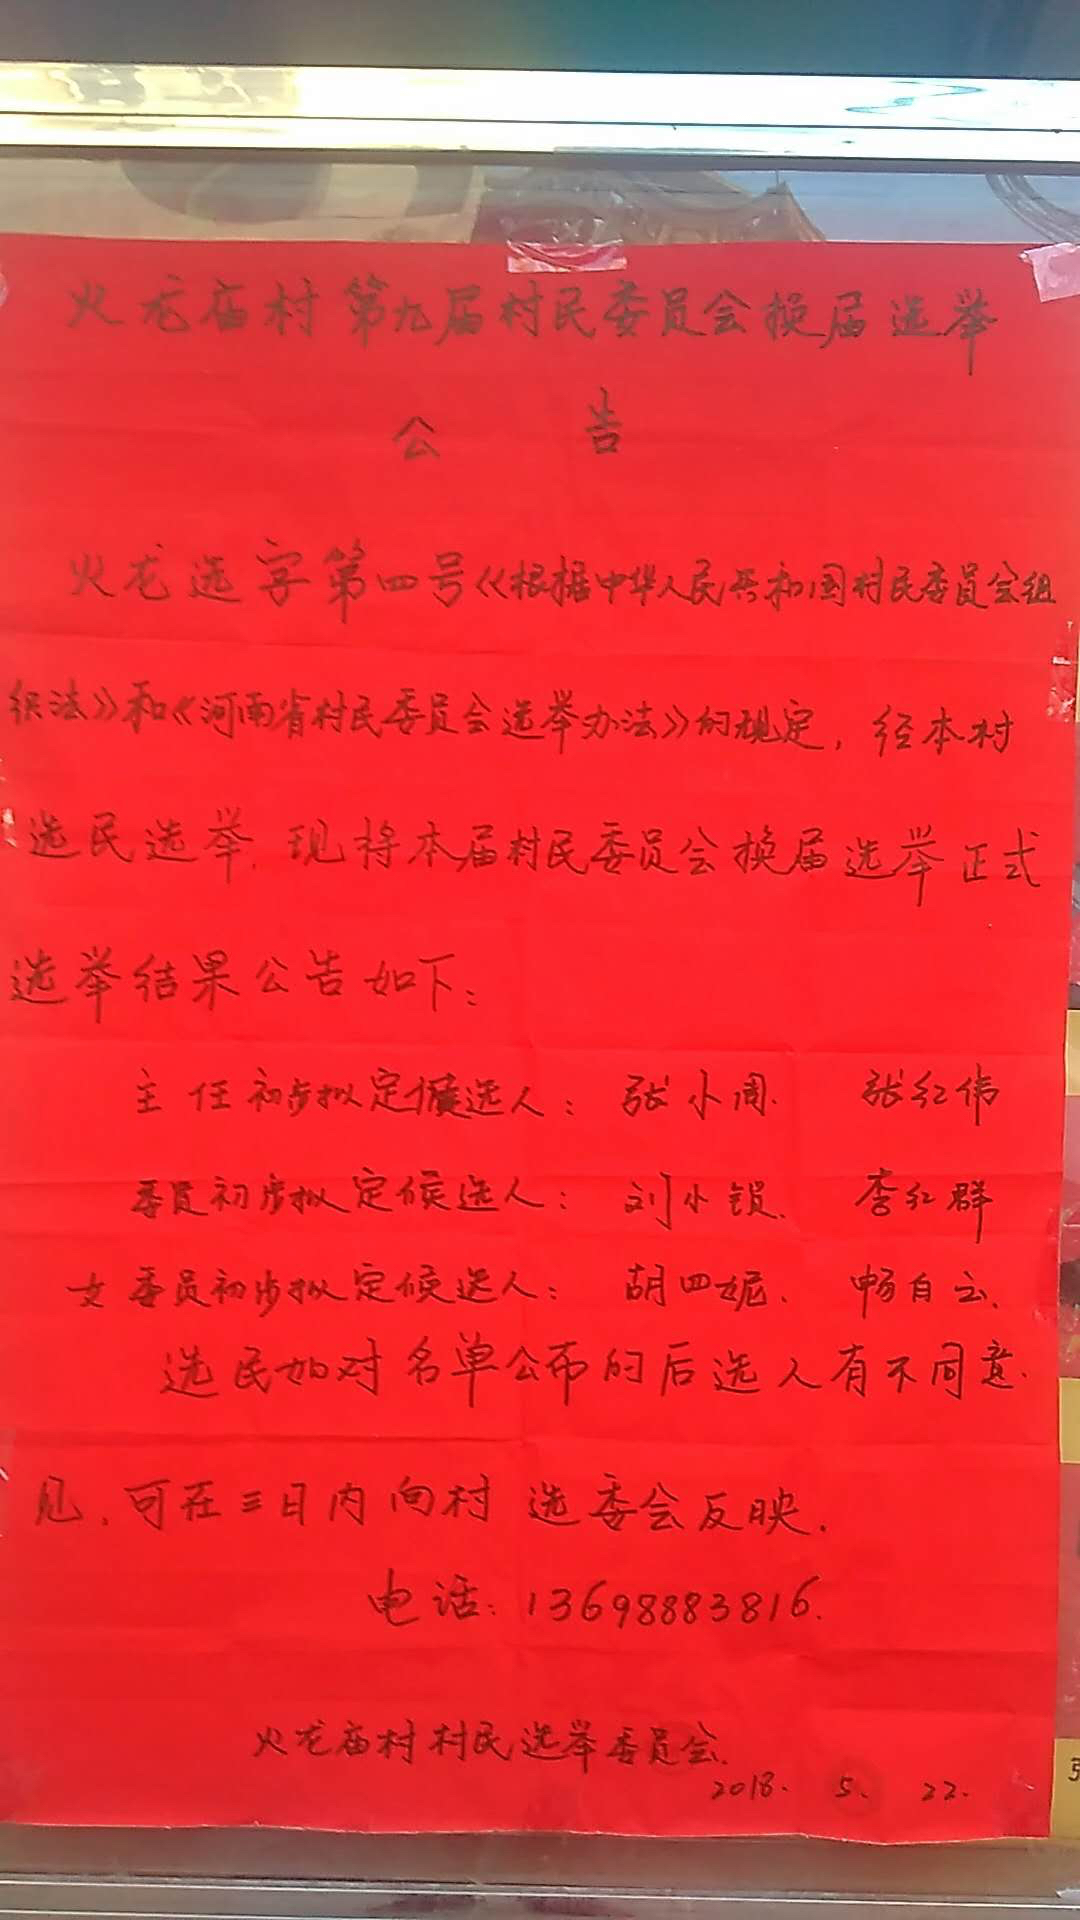 火龙庙村第九届村民委员会换届选举
公告
火龙选字第四号《根据中华人民共和国村民委员会组
织法》和《河南省村民委员会选举办法》的规定，经本村
选民选举，现将本届村民委员会换届选举正式
选举结果公告如下：
主任初步拟定候选人：张小周、张红伟
委员初步拟定候选人：刘小锁、李红群
女委员初步拟定候选人：胡四妮、畅自云、
选民如对名单公布的后选人有不同意
见，可在三日内向村选委会反映。
电话：13698883816.
火龙庙村村民选举委员会.
2018. 5. 22.